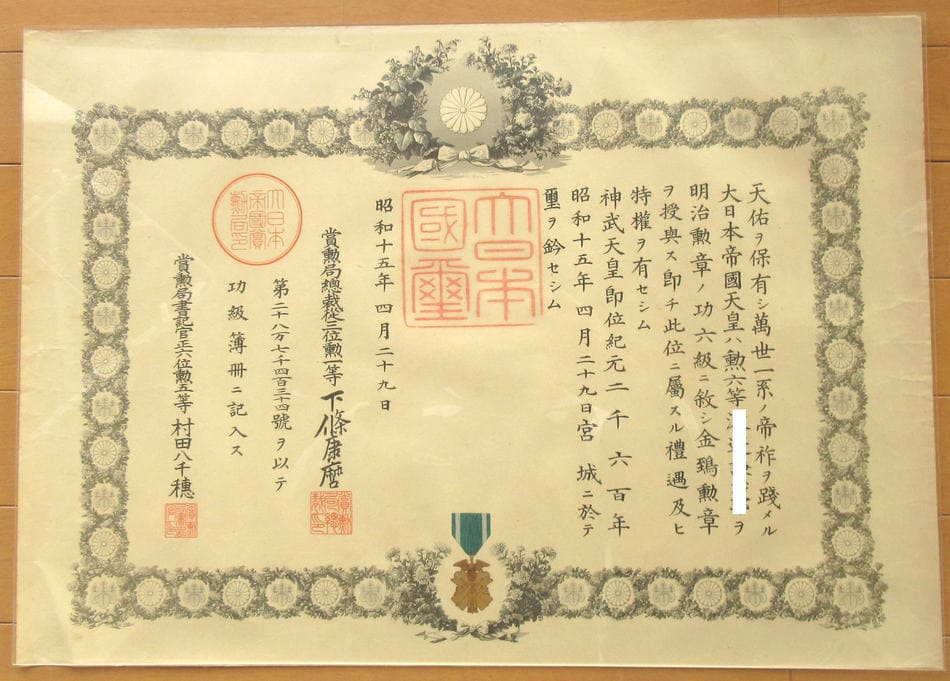 天佑ヲ保有シ萬世一系ノ帝祚ヲ踐メル
大日本帝國天皇ハ勲六等 ヲ
明治勲章ノ功六級ニ敘シ金鵄勲章
ヲ授與ス即チ此位ニ屬スル禮遇及ヒ
特權ヲ有セシム
神武天皇即位紀元二千六百年
昭和十五年四月二十九日宮城ニ於テ
璽ヲ鈐セシム
大日本國璽
昭和十五年四月二十九日
賞勲局總裁從三位勲一等下條康麿
第二十八万七千四百三十四號ヲ以テ
功級簿冊ニ記入ス
大日本帝國賞勲局印
賞勲局書記官正六位勲五等村田八千穗